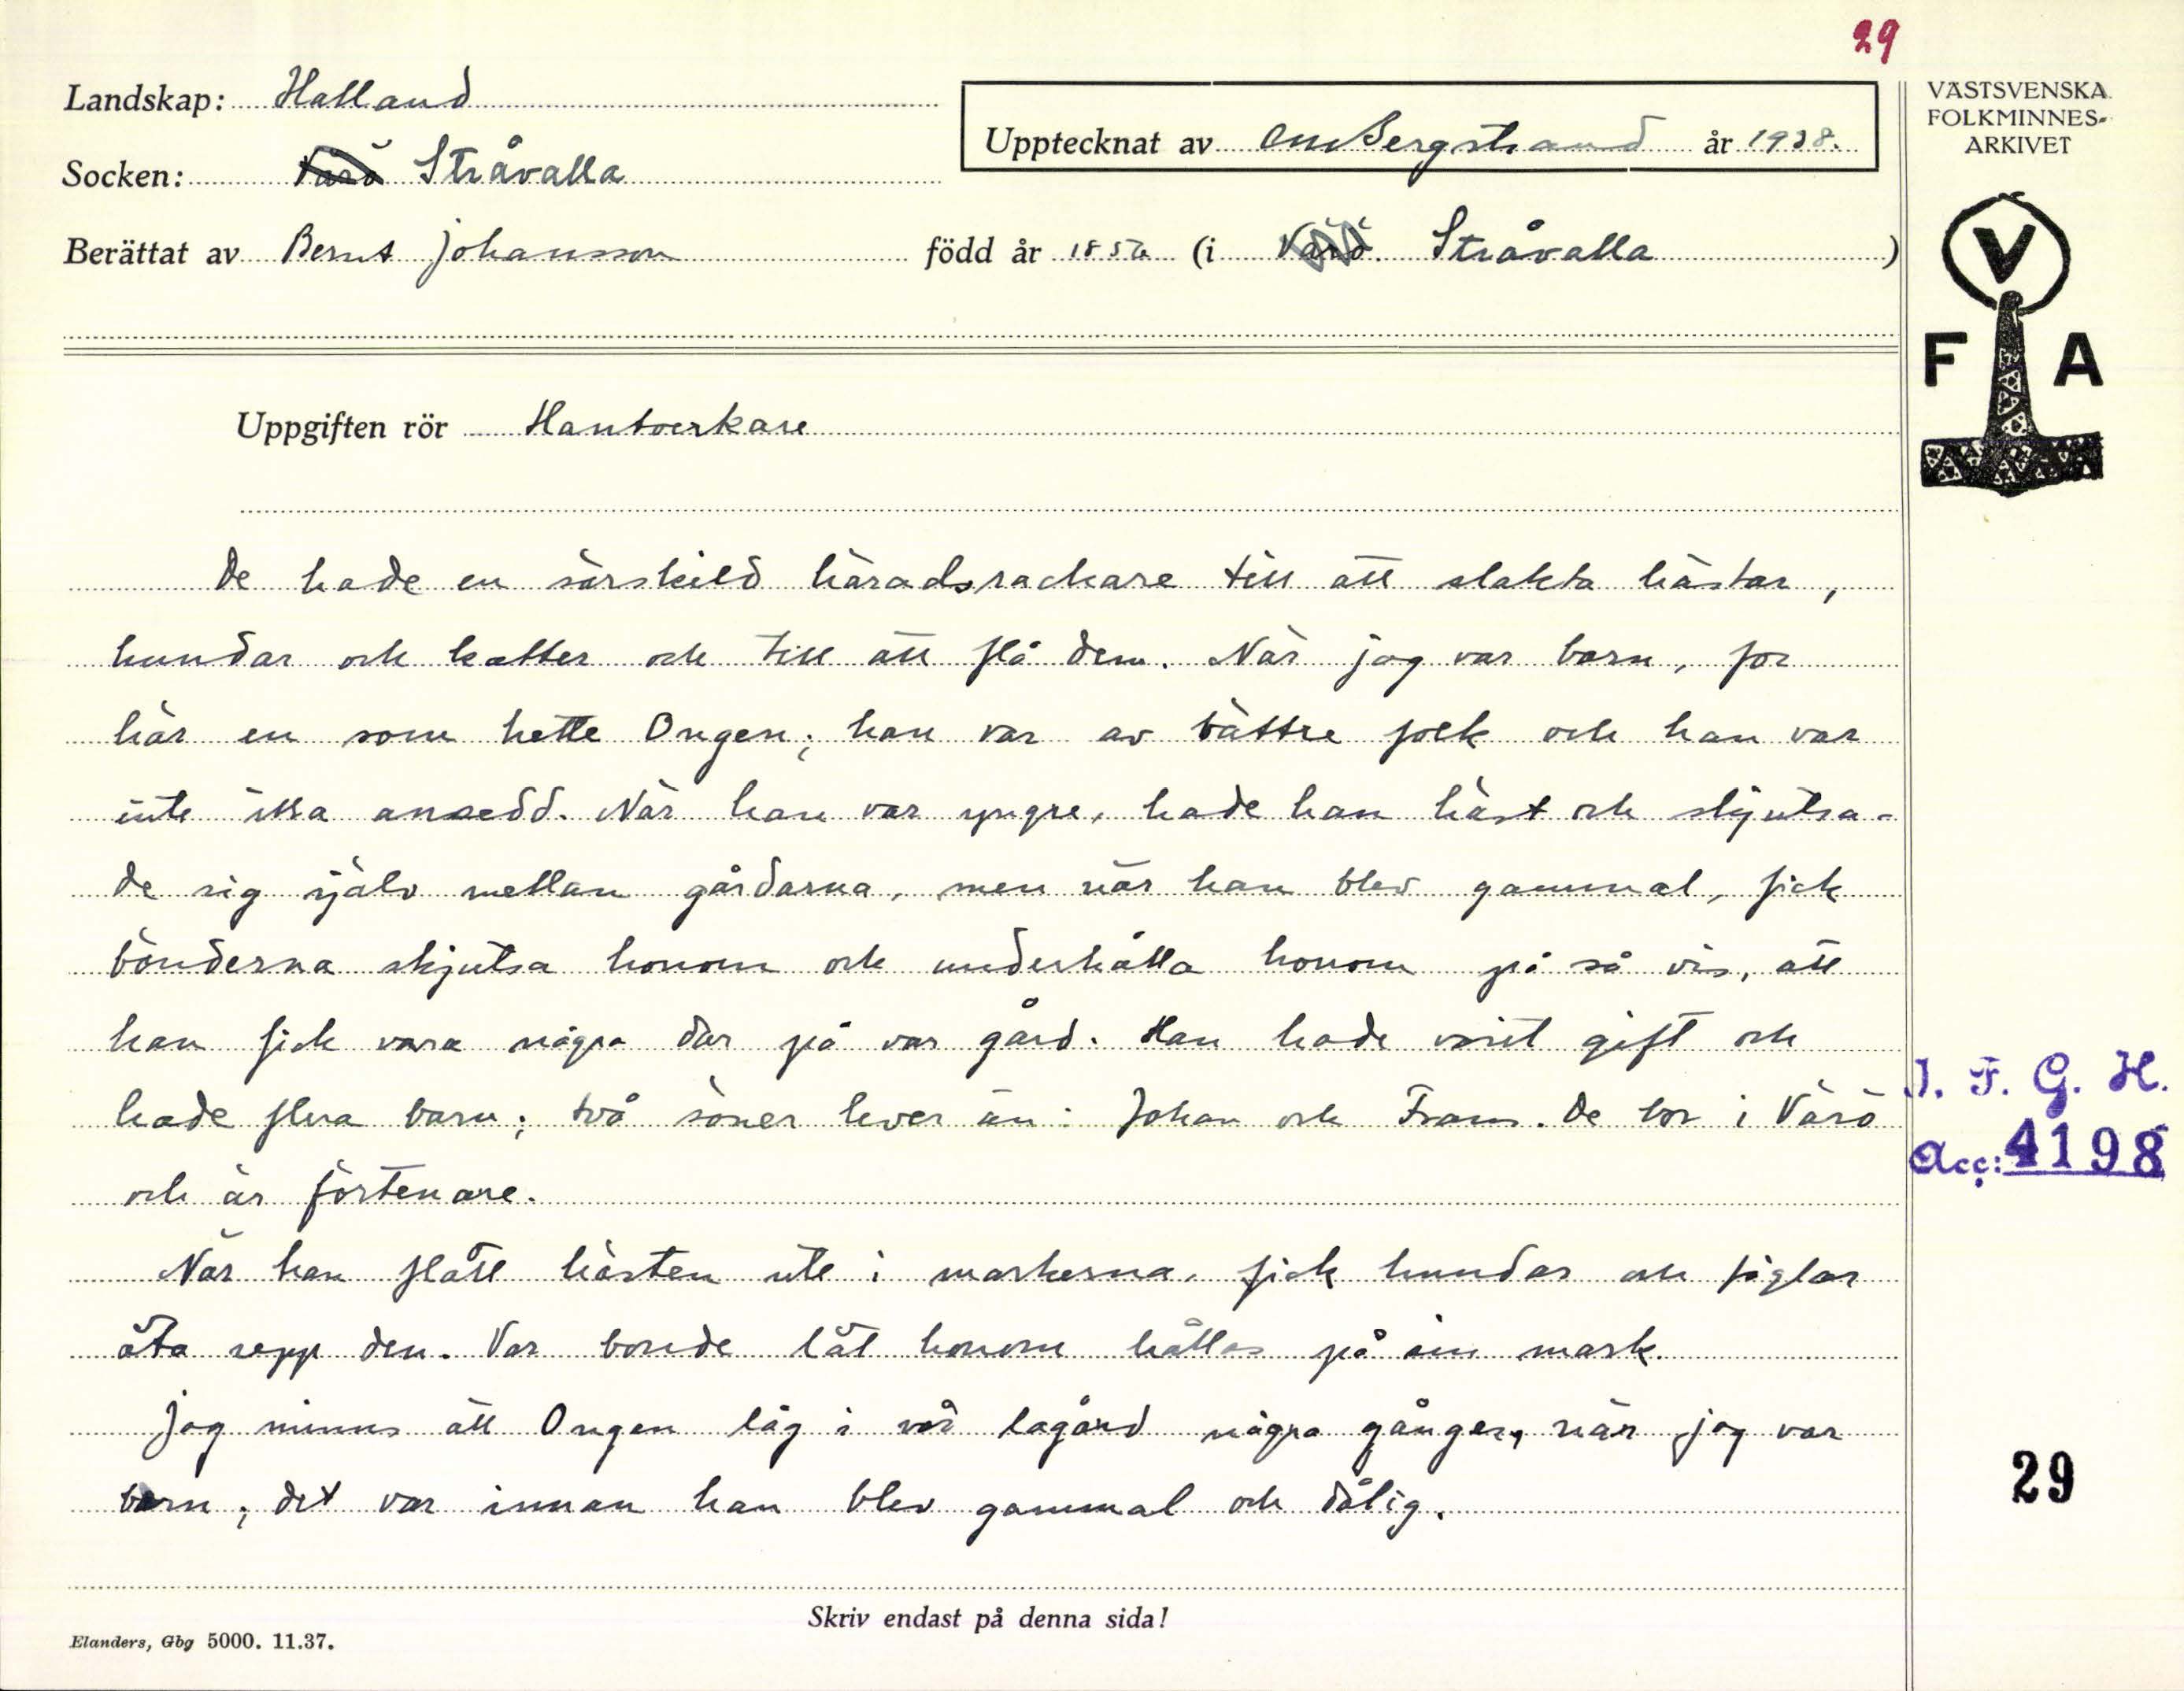 29
Landskap: Halland
Upptecknat av CM Bergstrand år 1938.
VÄSTSVENSKA
FOLKMINNES-
ARKIVET
Socken: Värö Stråvalla
Berättat av Bernt Johansson född år 1856 (i Värö. Stråvalla )
V
F A
Uppgiften rör Hantverkare
De hade en särskild häradsrackare till att slakta hästar,
hundar och katter och till att flå dem. När jag var barn, for
här en som hette Ongen; han var av bättre folk och han var
inte illa ansedd. När han var yngre, hade han häst och skjutsa-
de sig själv mellan gårdarna, men när han blev gammal, fick
bönderna skjutsa honom och underhålla honom på så vis, att
han fick vara några dar på var gård. Han hade varit gift och
hade flera barn; två söner lever än: Johan och Frans. De bor i Värö
och är förtenare.
När han flått hästen ute i markerna, fick hundar och fåglar
äta upp den. Var bonde lät honom hållas på sin mark.
Jag minns att Ongen låg i vår lagård några gånger, när jag var
barn; det var innan han blev gammal och dålig.
I. F. G. H.
Acc: 4198
29
Skriv endast på denna sida!
Elanders, Gbg 5000. 11.37.